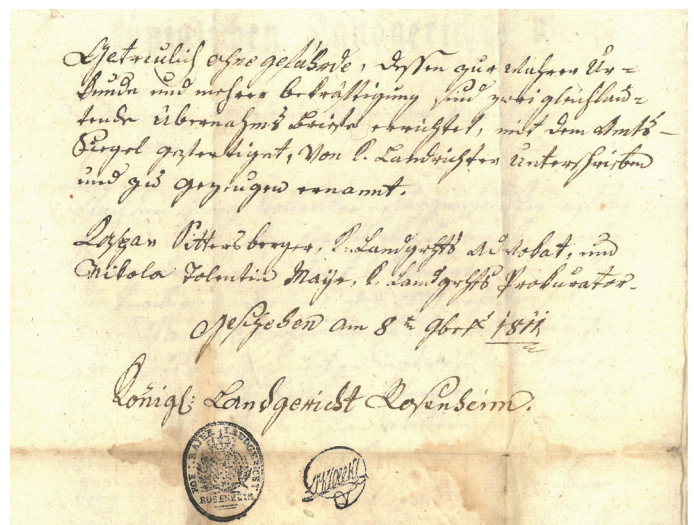 Getreulich ohne gefährde, dessen zur wahren Ur=
kunde und mehrer bekräftigung sind zwei gleichlau=
tende Übernahms Briefe errichtet, mit dem Amts=
Siegel gefertiget, Von k. Landrichter Unterschrieben
und zu gezeugen ernannt.
Kaspar Rittersberger, k. Landgrhts Advokat, und
Nikola Tolentin Maye, k. Landgrhts Prokurator.
Geschehen am 8ten 9ber 1811
Königl: Landgericht Rosenheim.
ROSENHEIM